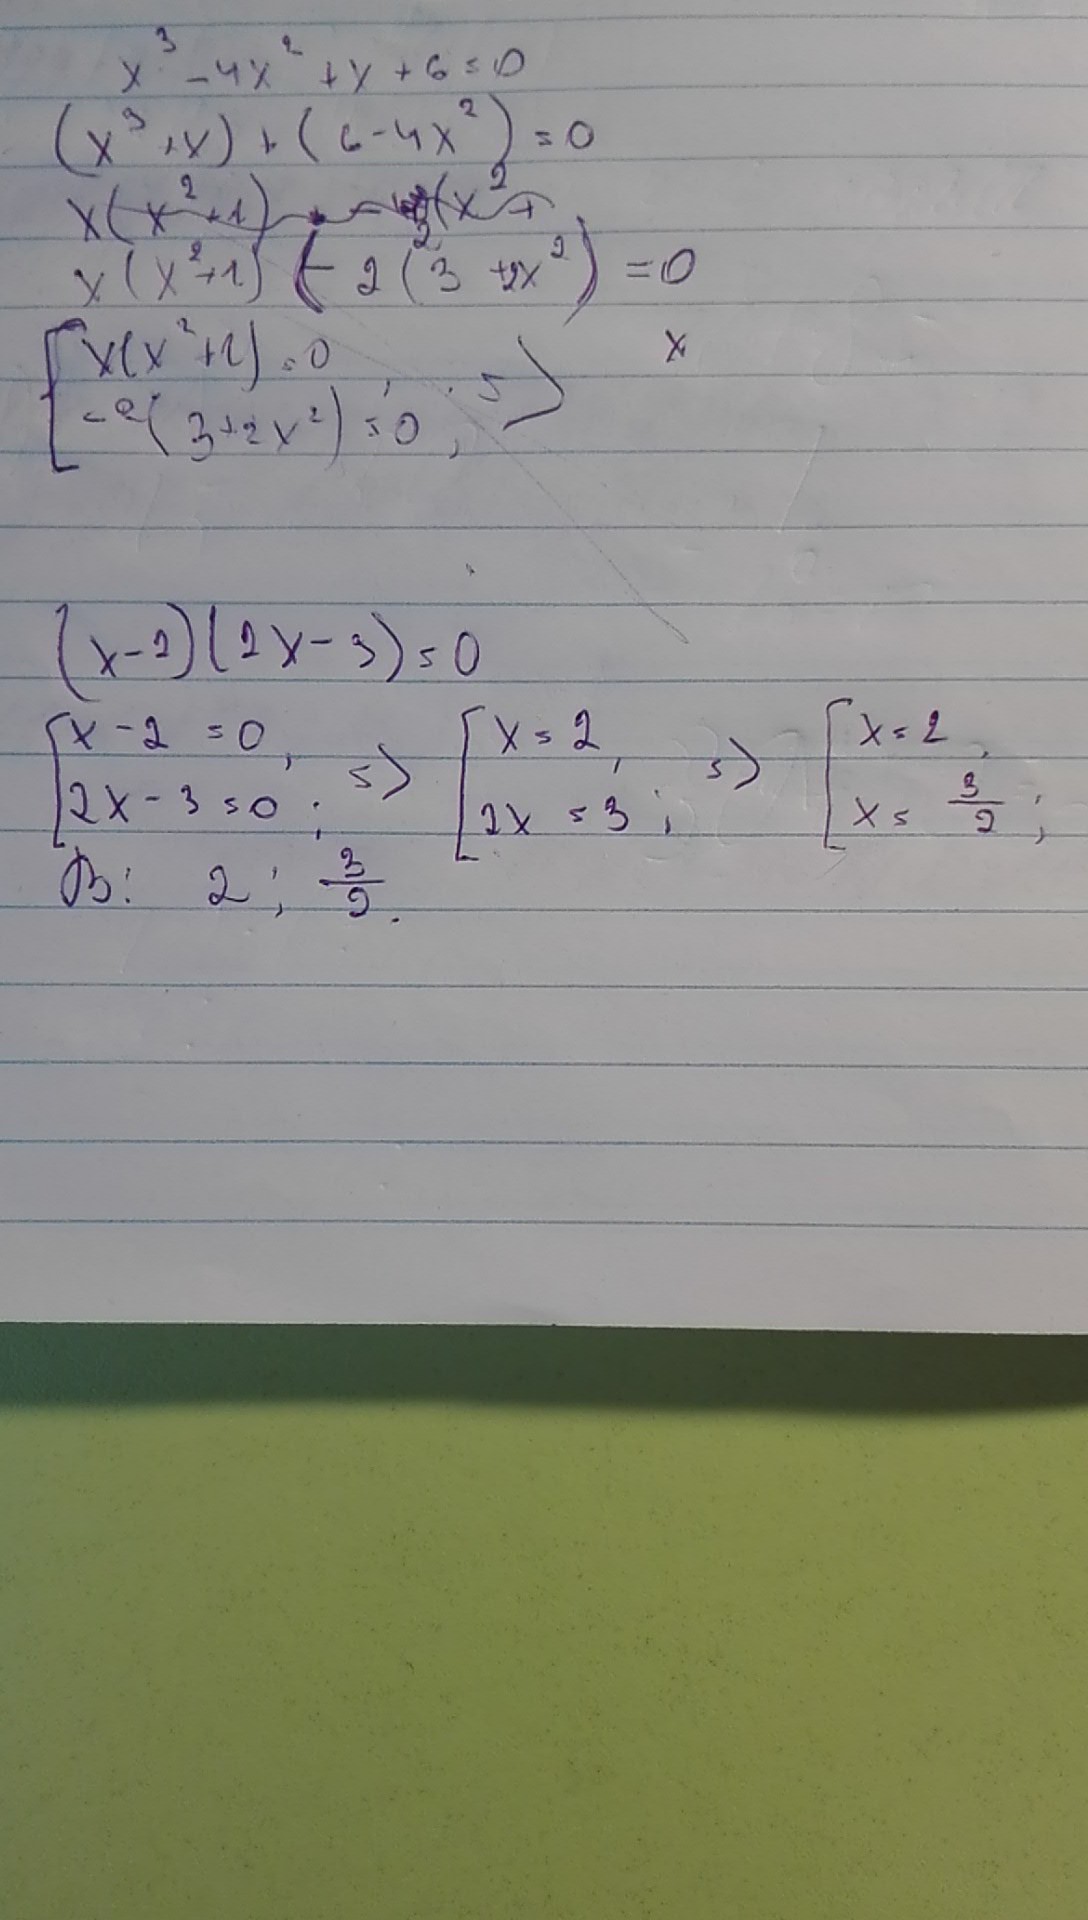 x³ - 4x² + x + 6 = 0
(x³ + x) + (6 - 4x²) = 0
x(x² + 1) - (x² +
x(x² + 1) (- 2(3 + 2x²) = 0
[ x(x² + 1) = 0, x
-2(3 + 2x²) = 0; =>
(x - 2)(2x - 3) = 0
[ x - 2 = 0, => [ x = 2, => [ x = 2,
2x - 3 = 0; 2x = 3; x = 3/2;
В: 2; 3/2.